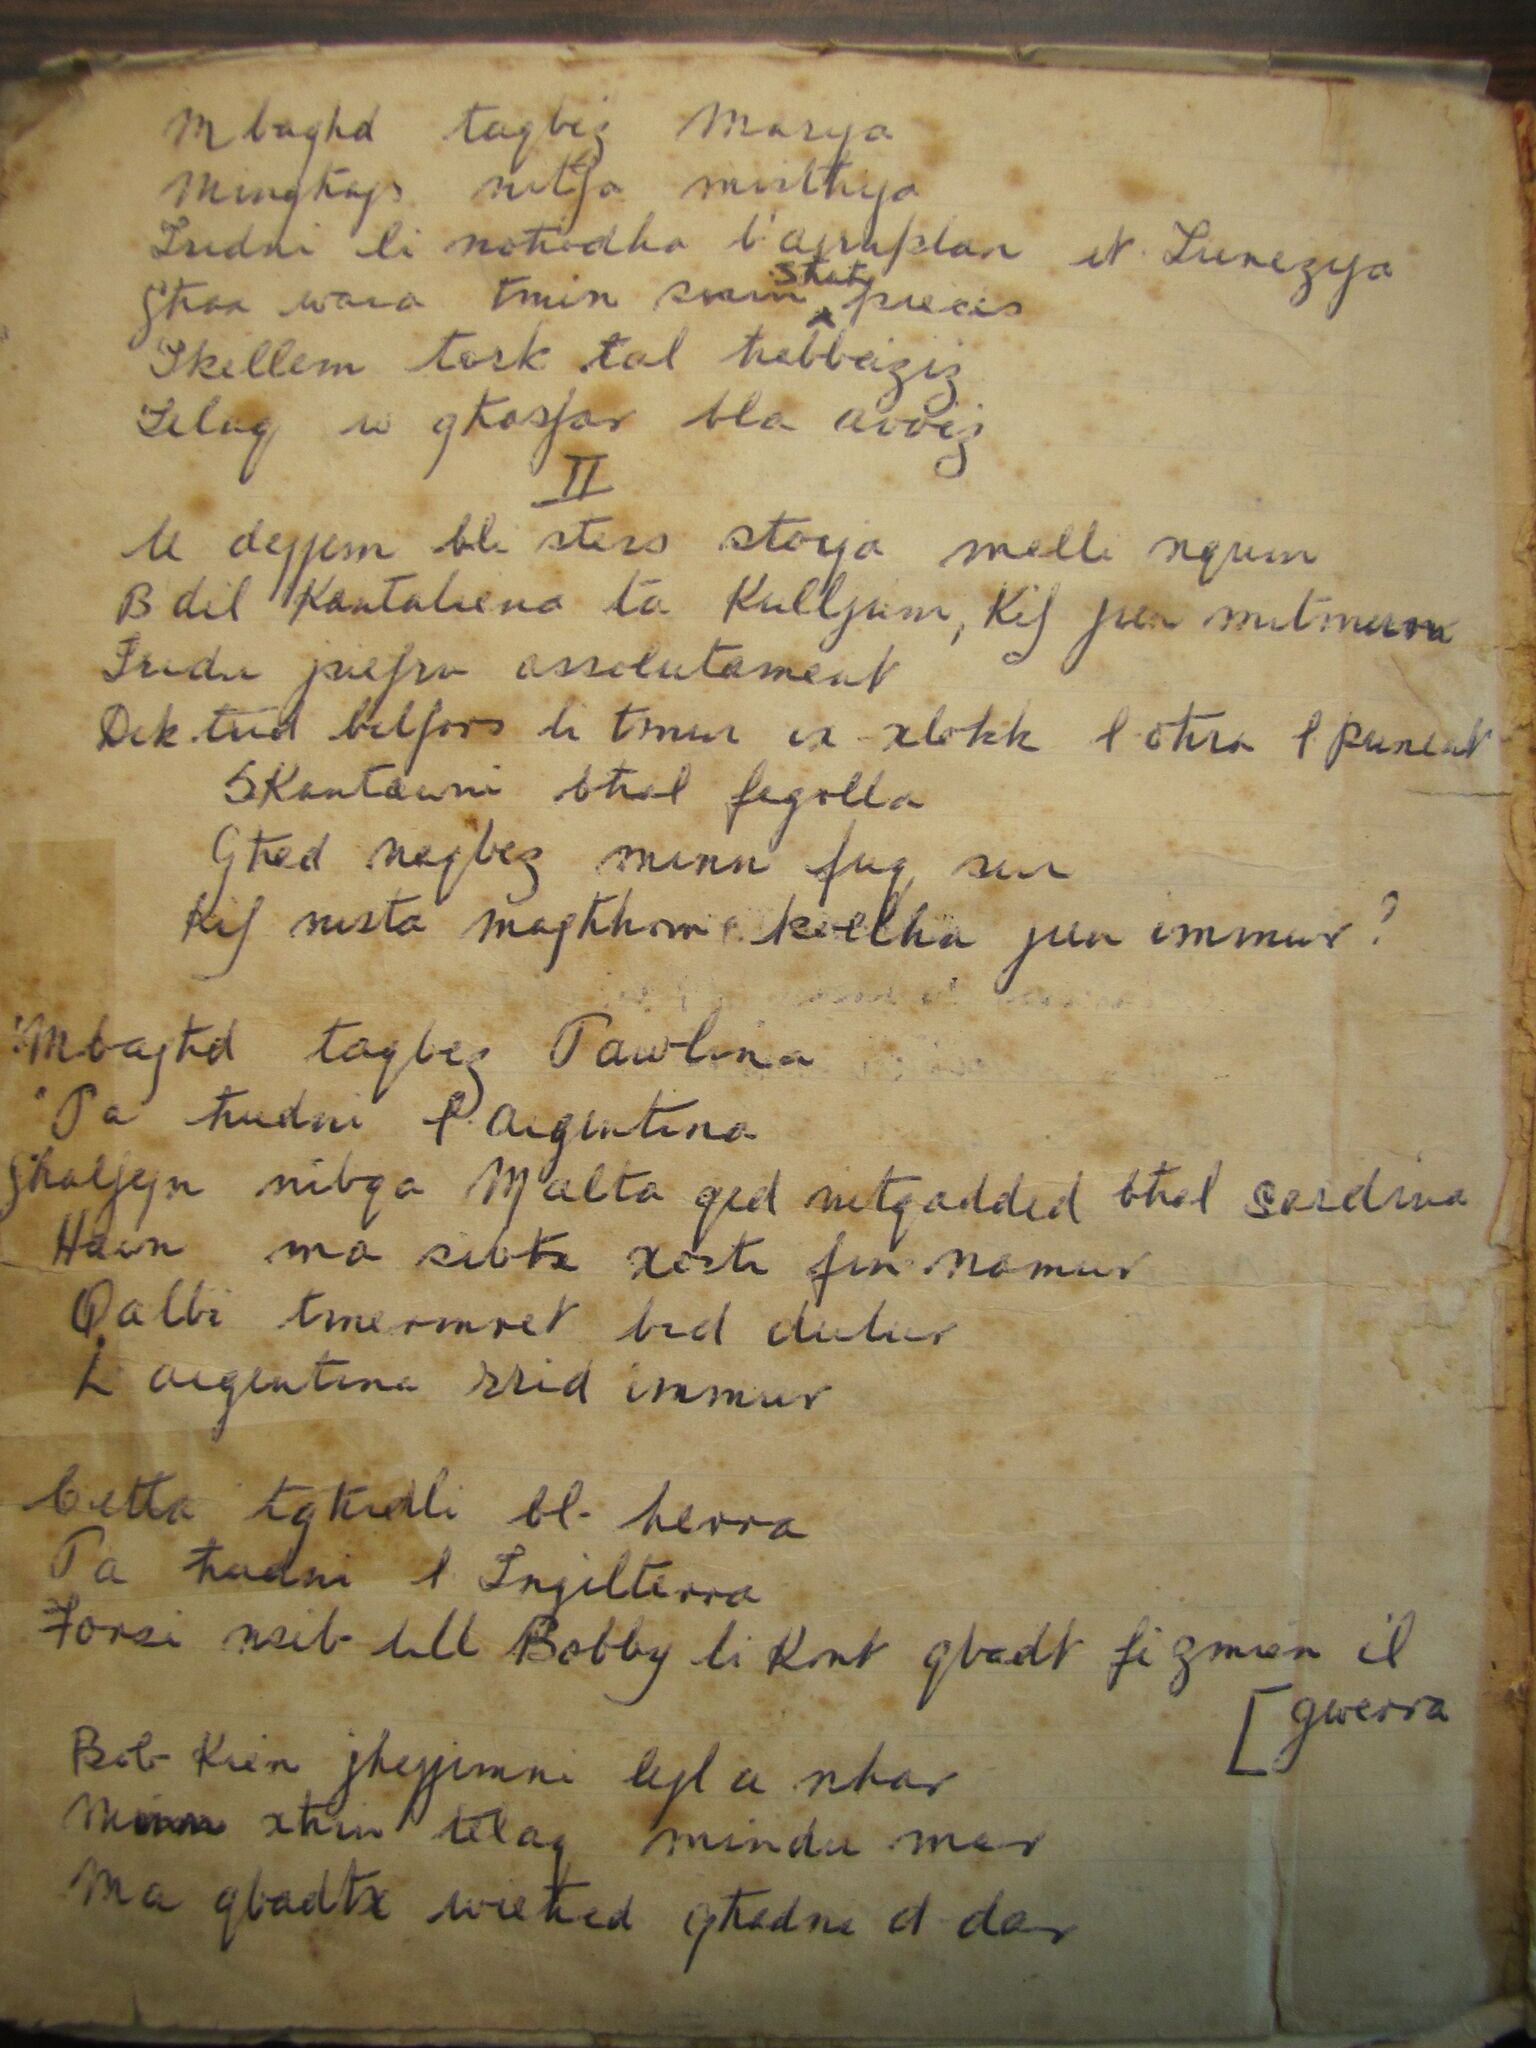 Mbaghd taqbiż Marya
Minghajs nitfa misthija
Iridni li noħodha b'ajruplan it-Tunezija
Għax wara tmin snin State pieces
Skellem tork tal ħabbażiż
Telaq u għosfor bla avviż
II
U dejjem bli stess storja melli nqum
B dil Kantaliena ta Kulljum, Kif jien mitmum
Iridu jiefru assolutament
Dik trid bilfors li tmur ix-xlokk l oħra l punent
Skantawni bħal fagolla
Għed naqbeż minn fuq sur
Kif nista magħhom kollha jien immur?
'Mbagħd taqbeż Pawlina
Pa ħudni l'argentina
Għalfejn nibqa Malta qed nitqadded bħal sardina
Hawn ma sibtx xorti fin-namur
Qalbi tmermret bid dulur
L argentina rrid immur
Ċetta tgħidli bl-herra
Pa ħudni l Ingilterra
Forsi nsib lill Bobby li Kont qbadt fi żmien il
[gwerra
Bob-Kien jħejjimni lejl u nhar
Minn xħin telaq mindu mar
Ma qbadtx wieħed għadni d-dar